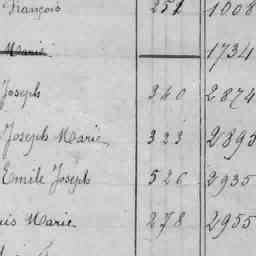 François 251 1008
Marie 1734
Joseph 340 2874
Joseph Marie 323 2895
Emile Joseph 526 2935
uis Marie 278 2955